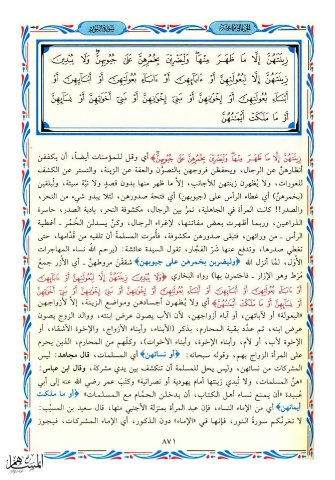 زِينَتَهُنَّ إِلَّا مَا ظَهَرَ مِنْهَا وَلْيَضْرِبْنَ بِخُمُرِهِنَّ عَلَىٰ جُيُوبِهِنَّ وَلَا يُبْدِينَ
زِينَتَهُنَّ إِلَّا لِبُعُولَتِهِنَّ أَوْ ءَابَآئِهِنَّ أَوْ ءَابَآءِ بُعُولَتِهِنَّ أَوْ أَبْنَآئِهِنَّ أَوْ
أَبْنَآءِ بُعُولَتِهِنَّ أَوْ إِخْوَٰنِهِنَّ أَوْ بَنِىٓ إِخْوَٰنِهِنَّ أَوْ بَنِىٓ أَخَوَٰتِهِنَّ أَوْ نِسَآئِهِنَّ
أَوْ مَا مَلَكَتْ أَيْمَٰنُهُنَّ
زِينَتَهُنَّ إِلَّا مَا ظَهَرَ مِنْهَا وَلْيَضْرِبْنَ بِخُمُرِهِنَّ عَلَىٰ جُيُوبِهِنَّ﴾ أي وقل للمؤمنات أيضاً، أن يكففن
أنظارهنَّ عن الرجال، ويحفظن فروجهن بالتصوُّن والعفة عن الزينة، والتستر عن الكشف
للعورات، ولا يُظهرن زينتهن للأجانب، إلاَّ ما ظهر منها بدون قصدٍ ولا نيَّة سيئة، وليلقين
(بخمرهن) أي غطاء الرأس على (جيوبهن) أي فتحة صدورهن، لئلا يبدو شيء من النحر،
والصدر!! كانت المرأة في الجاهلية، تمرُّ بين الرجال، مكشوفة النحر، بادية الصدر، حاسرة
الذراعين، وربما أظهرت بعض مفاتنها، لإغراء الرجال، وكنَّ يسدلن الخُمُر ـ أغطية
الرأس ـ من ورائهن، فتبقى صدورهن مكشوفة، فأُمرت المسلمة أن تلقيه من قُدَّامها، حتى
تغطي صدرها، وتدفع عنها شرَّ الفُجَّار، تقول السيدة عائشة: (يرحم الله نساء المهاجرات
الأُول، لمَّا أنزل الله ﴿وليضربن بخمرهن على جيوبهن﴾ شققن مروطهنَّ ـ أي الأزر جمعُ
مُرط وهو الإزار ـ فاختمرن بها) رواه البخاري ﴿وَلَا يُبْدِينَ زِينَتَهُنَّ إِلَّا لِبُعُولَتِهِنَّ أَوْ ءَابَآئِهِنَّ
أَوْ ءَابَآءِ بُعُولَتِهِنَّ أَوْ أَبْنَآئِهِنَّ أَوْ أَبْنَآءِ بُعُولَتِهِنَّ أَوْ إِخْوَٰنِهِنَّ أَوْ بَنِىٓ إِخْوَٰنِهِنَّ أَوْ بَنِىٓ أَخَوَٰتِهِنَّ أَوْ نِسَآئِهِنَّ
أَوْ مَا مَلَكَتْ أَيْمَٰنُهُنَّ﴾ أي ولا يُظهرن أجسادهن ومواضع الزينة، إلا لأزواجهن
«البعولة» أو لآبائهن، أو آباء أزواجهن، لأن الأب يصون عرض ابنته، ووالد الزوج يصون
عرض ابنه، ثم عدَّد بقية المحارم، بذكر (الأبناء، وأبناء الأزواج، والإخوة الأشقاء، أو
الإخوة لأب، أو لأم، وأبناء الإخوة، وأبناء الأخوات) وكلُّهم من المحارم، الذين يحرم
على المرأة الزواج بهم، وقوله سبحانه: ﴿أو نسائهن﴾ أي المسلمات، قال مجاهد: ليس
المشركات من نسائهن، وليس يحل للمسلمة أن تنكشف بين يدي مشركة، وقال ابن عباس:
«هنَّ المسلمات، ولا تُبدي زينتها أمام يهودية أو نصرانية» وكتب عمر رضي الله عنه إلى أبي
عُبيدة «أن يمنع نساء أهل الكتاب، أن يدخلن الحمَّام مع المسلمات» ﴿أو ما ملكت
أيمانهن﴾ أي من الإماء النساء، فإن عبد المرأة بمنزلة الأجنبي منها، قال سعيد بن المسيِّب:
لا تغرنَّكم سورةُ النور، فإنها في «الإماء» دون الذكور، أي الإماء المشركات، فيجوز
٨٧١